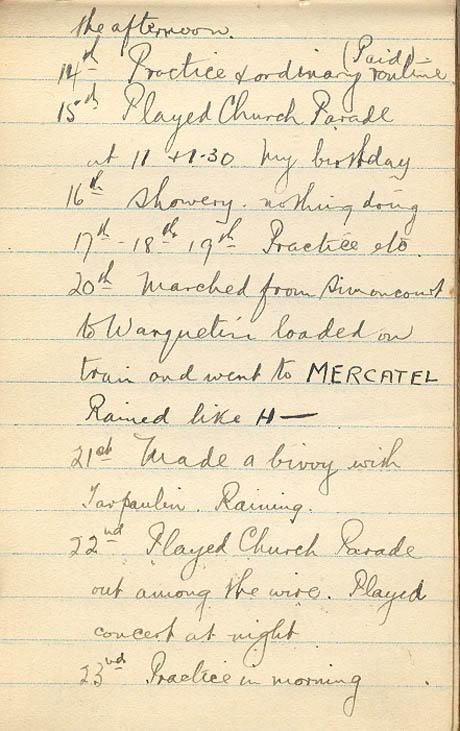 the afternoon.
(Paid)
14th Practice & ordinary routine
15th Played Church Parade
at 11 & 1-30 My birthday
16th Showery. nothing doing
17th - 18th - 19th Practice etc.
20th Marched from Simoncourt
to Warquetin loaded on
train and went to MERCATEL
Rained like H—
21st Made a bivvy with
Tarpaulin. Raining.
22nd Played Church Parade
out among the wire. Played
concert at night
23rd Practice in morning